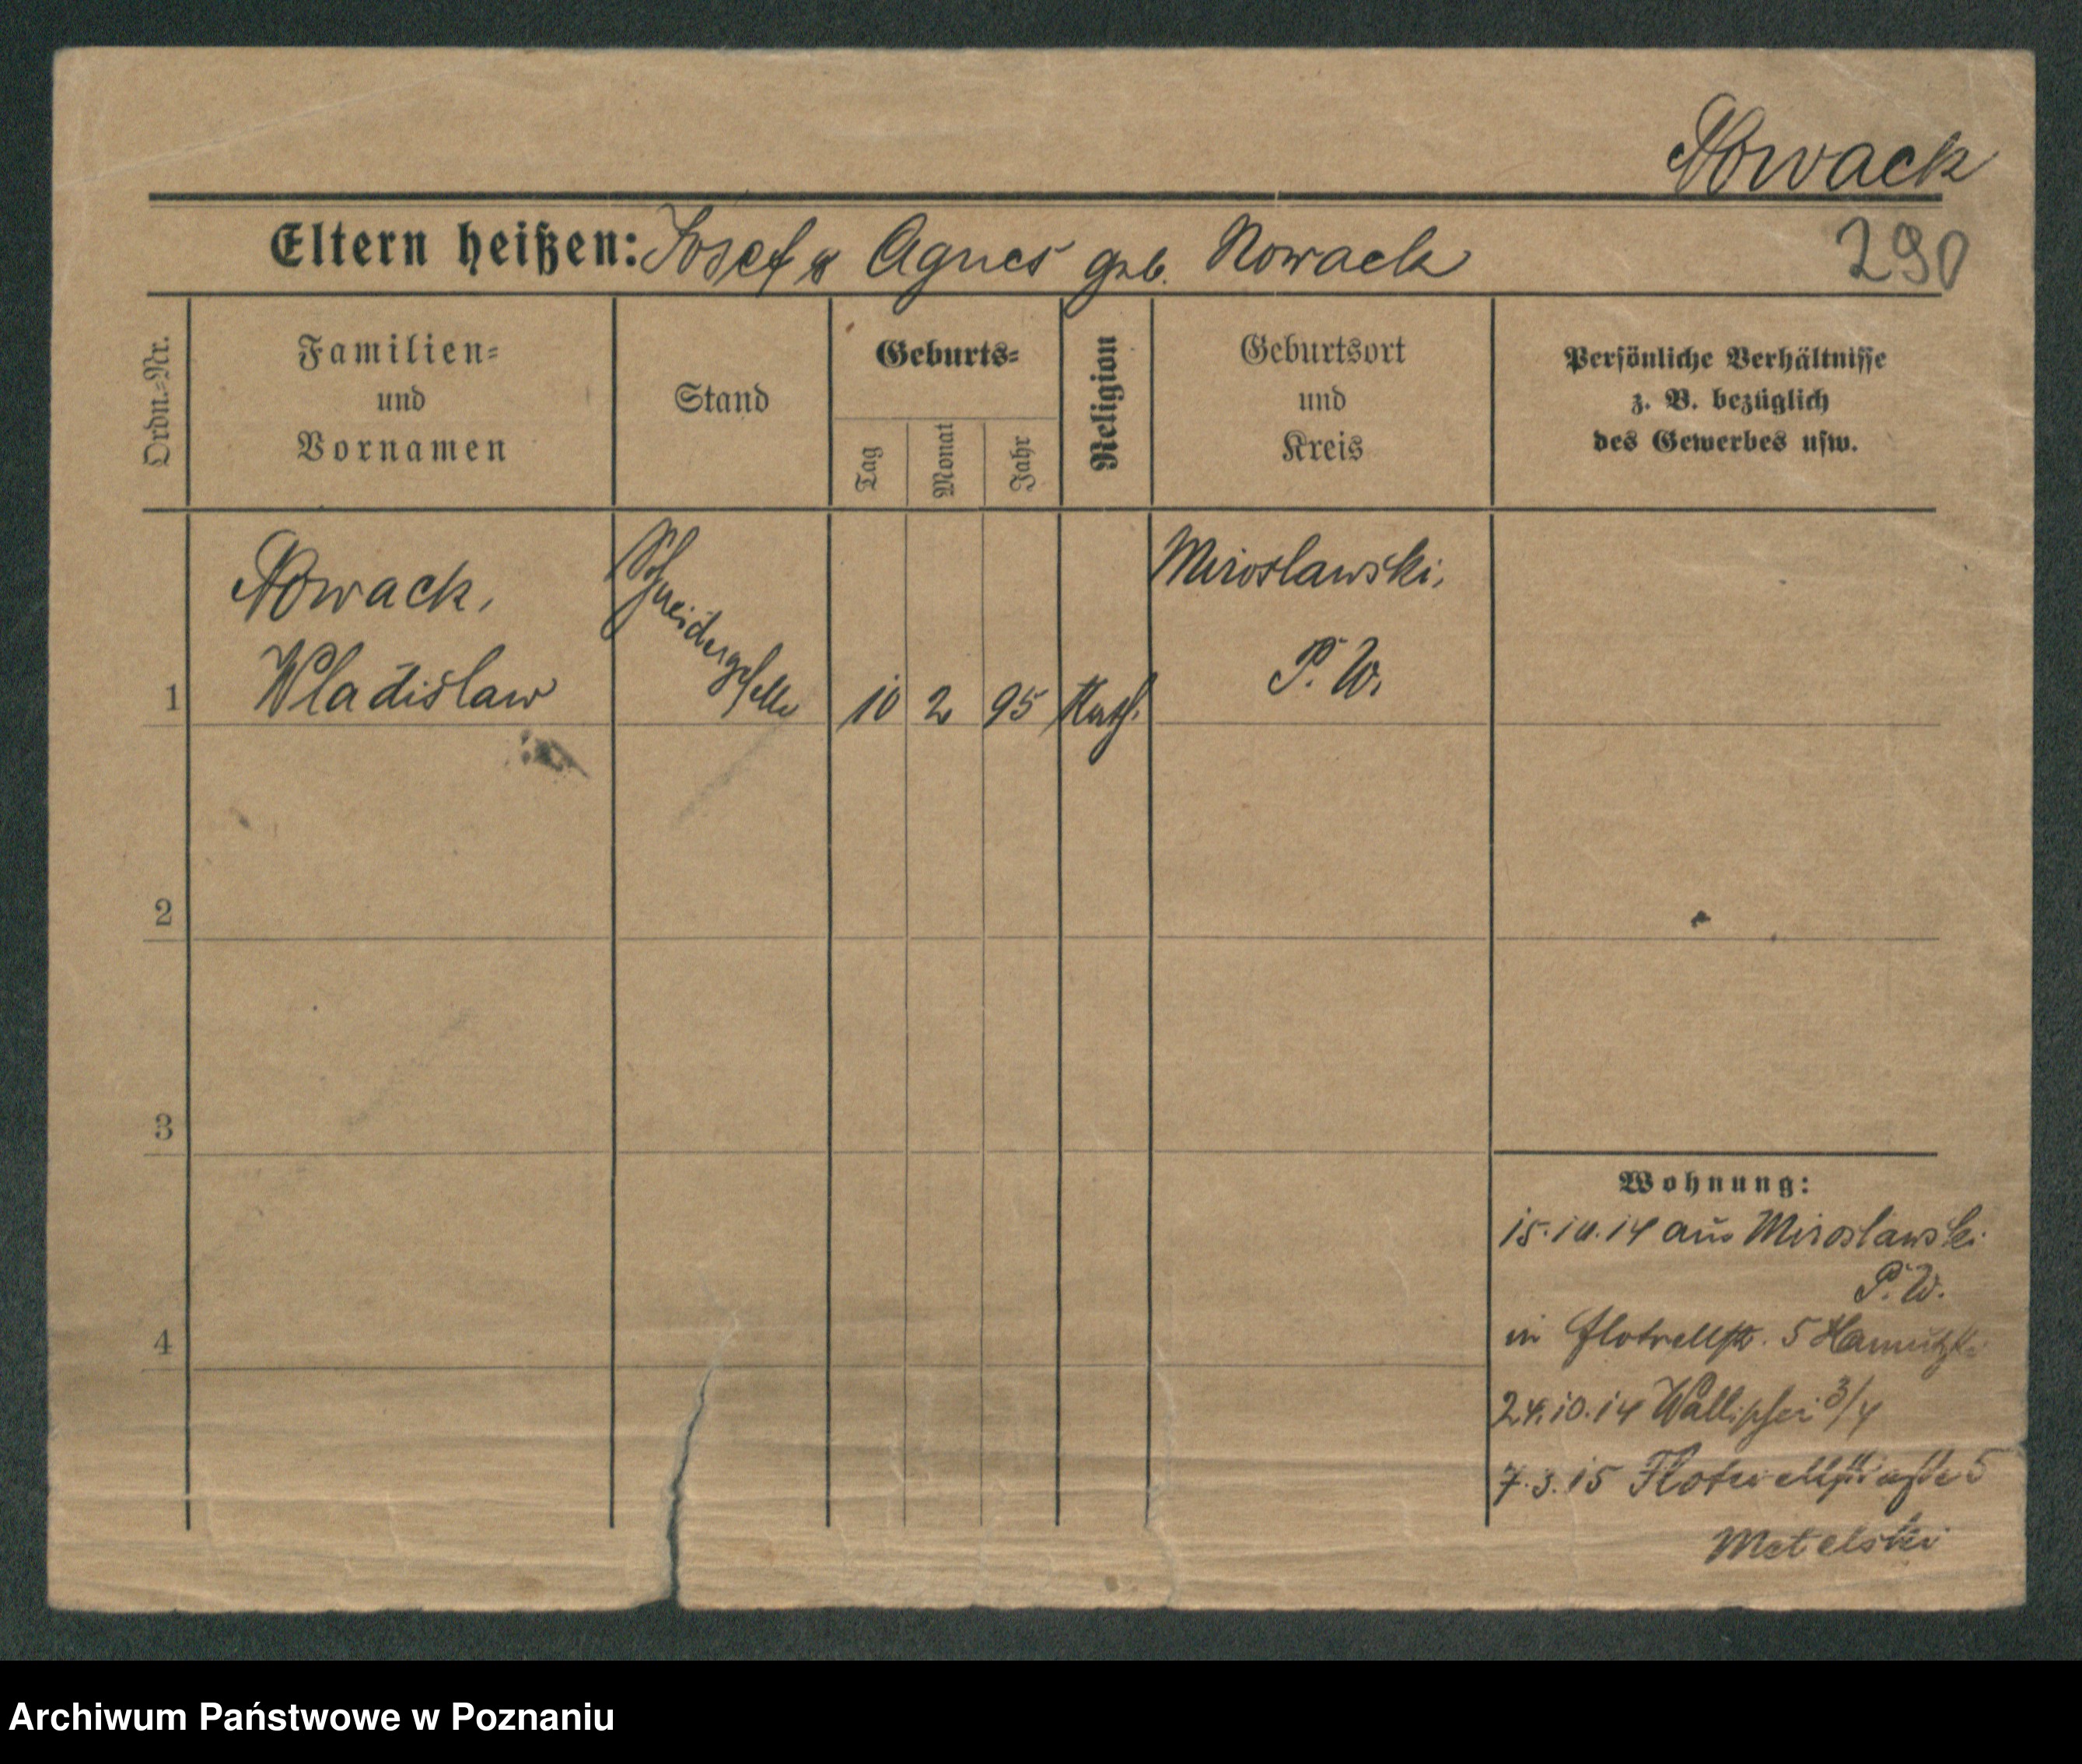 Nowack
Eltern heißen: Josef & Agnes geb. Nowack
290
Ordn.-Nr.
Familien-
und
Vornamen
Stand
Geburts-
Tag
Monat
Jahr
Religion
Geburtsort
und
Kreis
Persönliche Verhältnisse
z. B. bezüglich
des Gewerbes usw.
Nowack,
Wladislaw
Schneidergeselle
1
10 2 95 Kath.
Miroslawski,
P. W.
2
3
4
Wohnung:
15.10.14 aus Miroslawski
P. W.
in Flotwellstr. 5
24.10.14 Wallischei 3/4
7.3.15 Flotwellstraße 5
Metelski
Archiwum Państwowe w Poznaniu